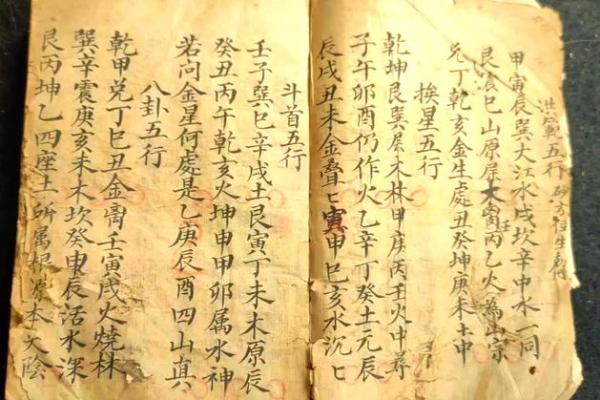 洪範五行 砂方位生
甲寅辰巽大江水戌坎辛申水一同
艮震巳山原屬木离壬丙乙火為山宗
兌丁乾亥金生處丑癸坤庚未土中
挨星五行
乾坤艮巽屬木林甲庚丙壬火中尋
子午卯酉仍作火乙辛丁癸土元辰
辰戌丑未金聲匕寅申巳亥水沉匕
斗首五行
壬子巽巳辛戌土艮寅丁未木原辰
癸丑丙午乾亥火坤申甲卯属水神
若問金星何處是乙庚辰酉四山真
八卦五行
乾甲兌丁巳丑金离壬寅戌火燒林
巽辛震庚亥未木坎癸申辰活水深
艮丙坤乙四座土所属根源本文陰